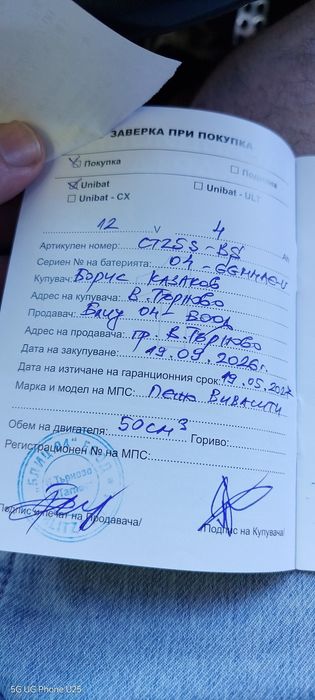 ЗАВЕРКА ПРИ ПОКУПКА
Покупка
Unibat
Unibat - ULT
Unibat - CX
12 V 4 Ah
Артикулен номер: CT25S-BS
Сериен № на батерията: 04-
Купувач: Борис Казаков
Адрес на купувача: В. Търново
Продавач: 04-
Адрес на продавача: гр. В. Търново
Дата на закупуване: 19.09.2026г.
Дата на изтичане на гаранционния срок: 19.05.2027
Марка и модел на МПС: Пежо Вивасити
Обем на двигателя: 50 см³ Гориво:
Регистрационен № на МПС:
Подпис и печат на Продавача/
/Подпис на Купувача/
5G UG Phone U25